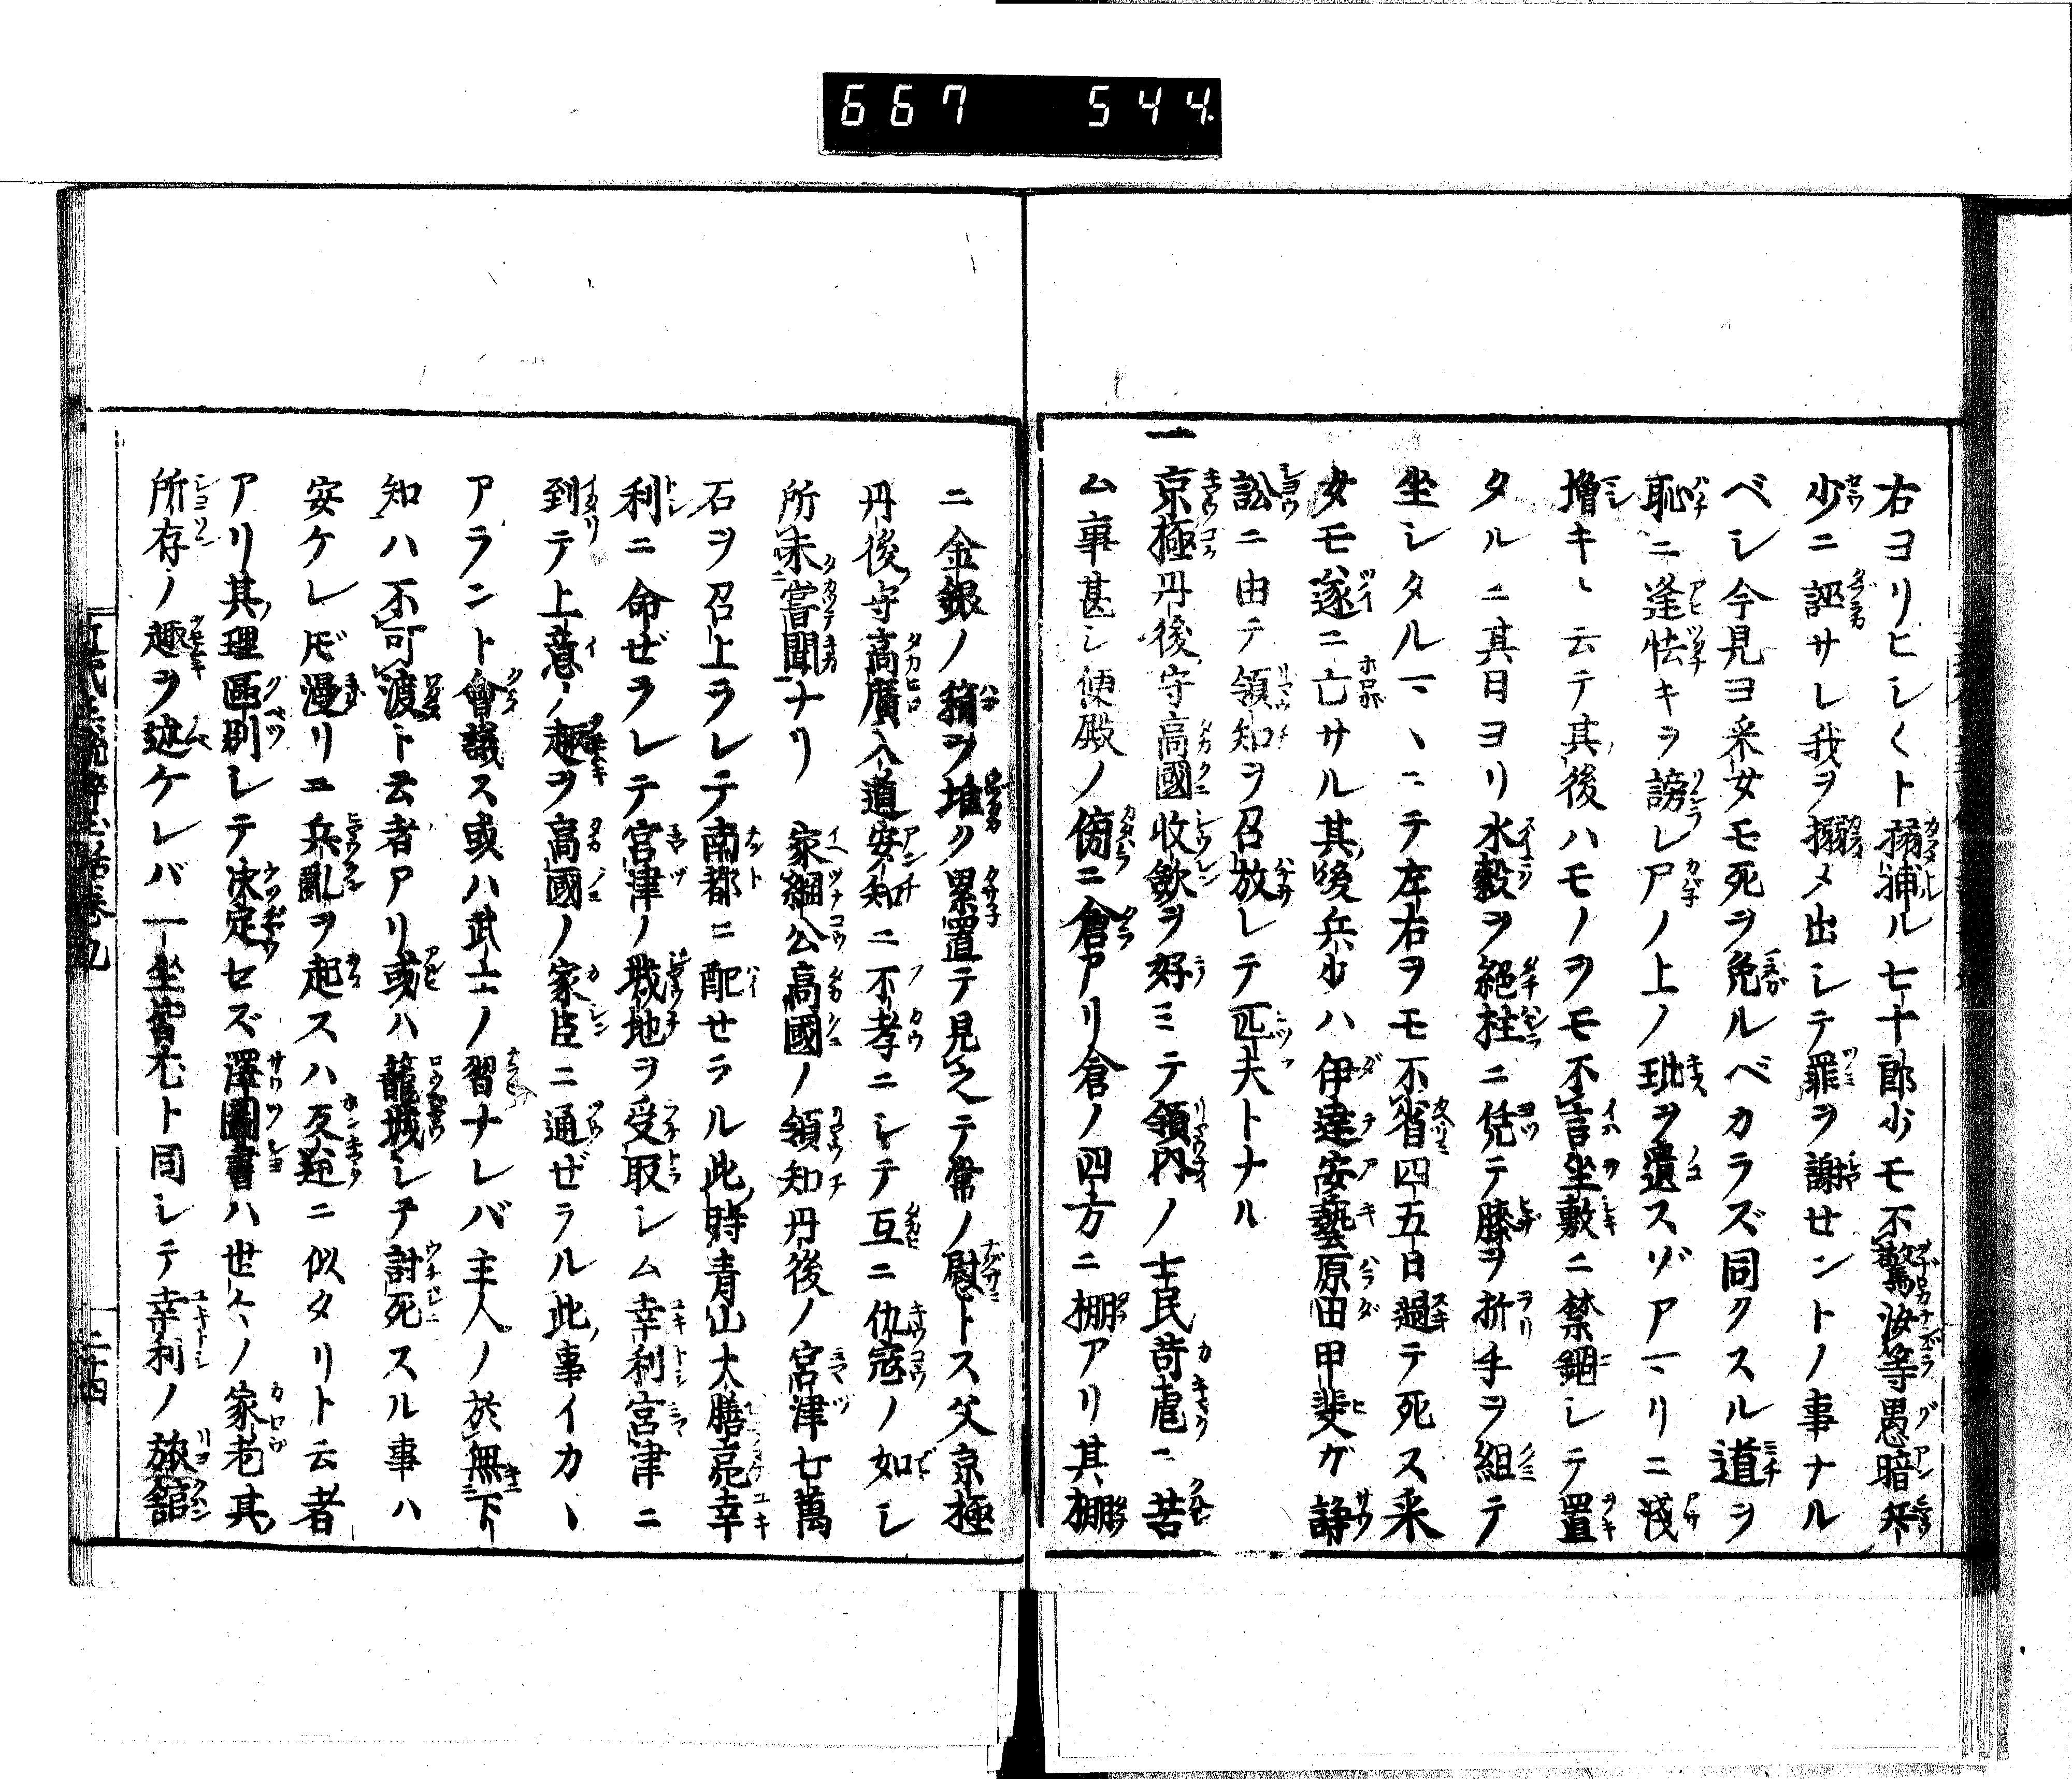 667 544
右ヨリヒシ〱ト搦捕ル七十郎少モ不驚汝等愚暗ニ
少ニ誣サレ我ヲ搦メ出シテ罪ヲ謝せントノ事ナル
ベシ今見ヨ釆女モ死ヲ免ルベカラズ同クスル道ヲ
恥ニ逢怯キヲ謗レアノ上ノ玼ヲ遺スゾアヽリニ淺
増キヽ云テ其後ハモノヲモ不言坐敷ニ禁錮シテ置
タルニ其日ヨリ水穀ヲ絶柱ニ凭テ膝ヲ折手ヲ組テ
坐シタルマヽニテ左右ヲモ不省四五日過テ死ス釆
女モ遂ニ亡サル其後兵少ハ伊達安藝原田甲斐ガ諍
訟ニ由テ領知ヲ召放レテ匹夫トナル
一京極丹後守高國收斂ヲ好ミテ領内ノ士民苛虐ニ苦
ム事甚シ便殿ノ傍ニ倉アリ倉ノ四方ニ棚アリ其棚
ニ金銀ノ箱ヲ堆ク累置テ見之テ常ノ慰トス父京極
丹後守高廣入道安知ニ不孝ニシテ互ニ仇寇ノ如シ
所未嘗聞ナリ 家綱公高國ノ領知丹後ノ宮津七萬
石ヲ召上ラレテ南都ニ配セラル此時青山大膳亮幸
利ニ命ぜラレテ宮津ノ城地ヲ受取シム幸利宮津ニ
到テ上意ノ趣ヲ高國ノ家臣ニ通ぜラル此事イカヽ
アラント會議ス或ハ武士ノ習ナレバ主人ノ於無下
知ハ不可渡ト云者アリ或ハ籠城シテ討死スル事ハ
安ケレ𪜈漫リニ兵亂ヲ起スハ反逆ニ似タリト云者
アリ其理區別シテ决定セズ澤圖書ハ世々ノ家老其
所存ノ趣ヲ述ケレバ一坐皆尤ト同シテ幸利ノ旅舘
二十四